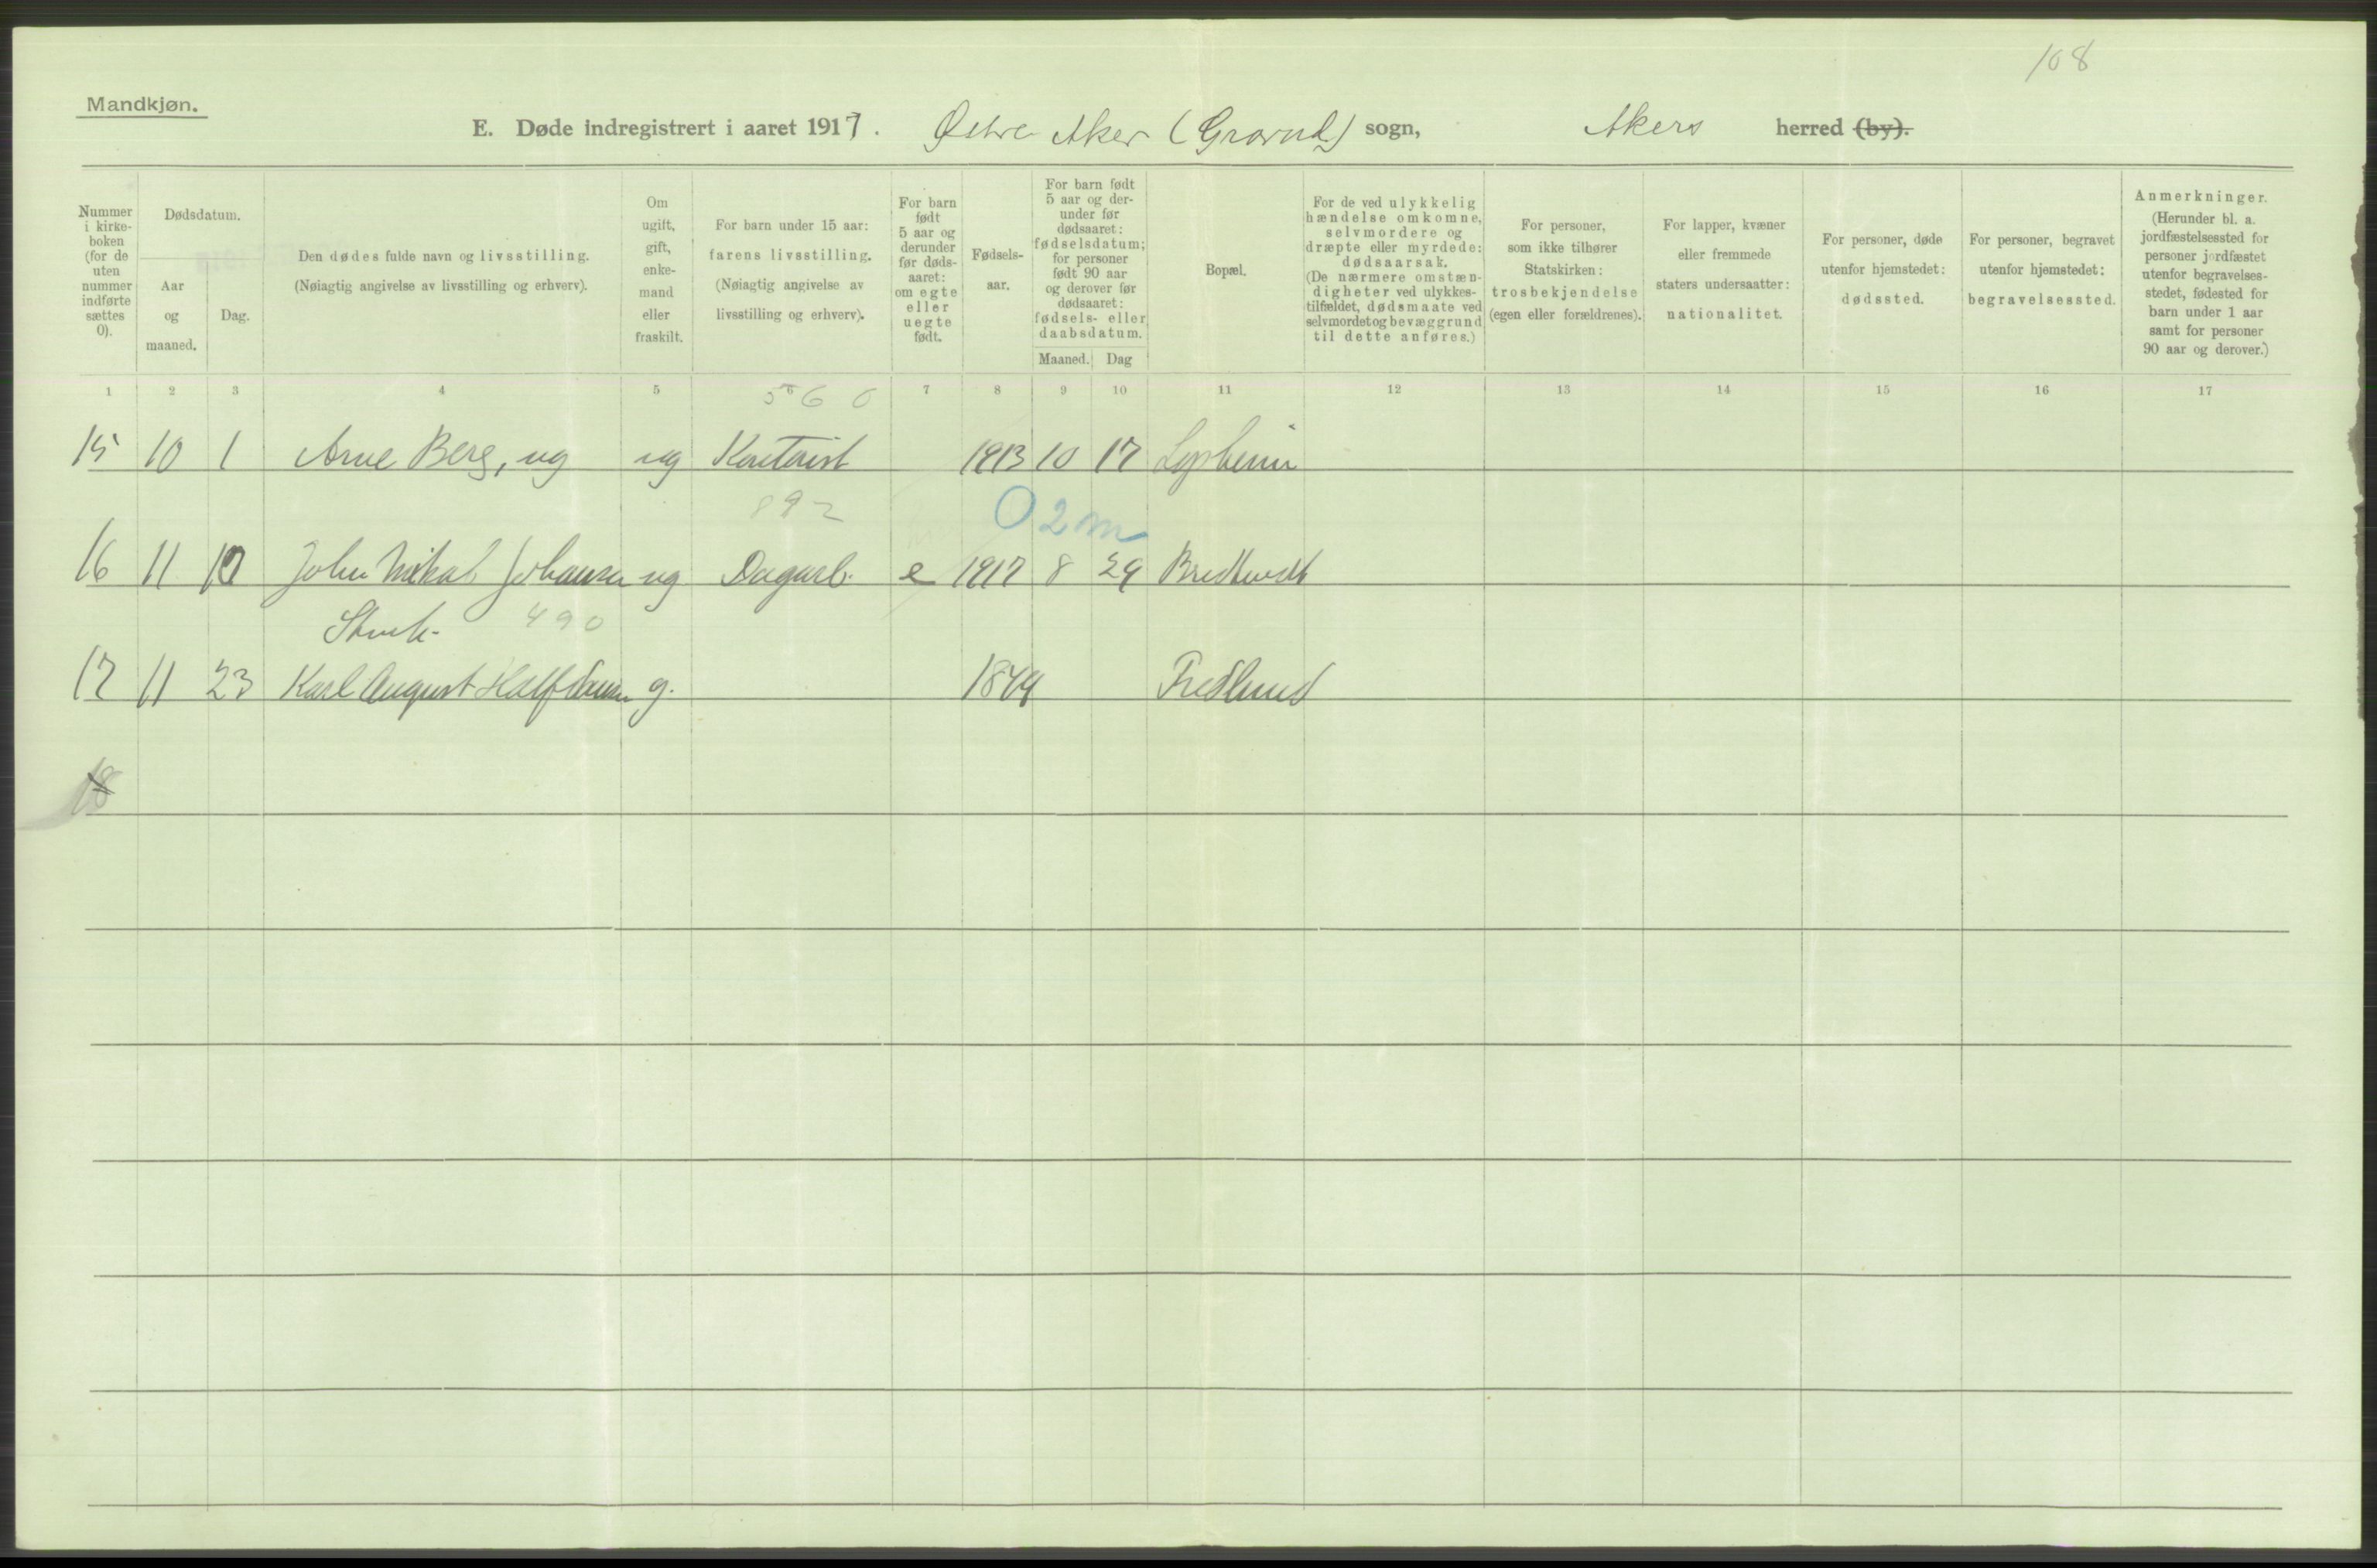 108
Mandkjøn.
E. Døde indregistrert i aaret 1917. Østre Aker (Grorud) sogn, Akers herred (by).
Nummer i kirke- boken (for de uten nummer indførte sættes 0).
Dødsdatum.
Aar og maaned.
Dag.
Den dødes fulde navn og livsstilling.
(Nøiagtig angivelse av livsstilling og erhverv).
Om ugift, gift, enke- mand eller fraskilt.
For barn under 15 aar: farens livsstilling.
(Nøiagtig angivelse av livsstilling og erhverv).
For barn født 5 aar og derunder før døds- aaret: om egte eller uegte født.
Fødsels- aar.
For barn født 5 aar og der- under før dødsaaret: fødselsdatum; for personer født 90 aar og derover før dødsaaret: fødsels- eller daabsdatum.
Maaned. Dag
Bopæl.
For de ved ulykkelig hændelse omkomne, selvmordere og dræpte eller myrdede: dødsaarsak.
(De nærmere omstæn- digheter ved ulykkes- tilfældet, dødsmaate ved selvmordet og bevæggrund til dette anføres.)
For personer, som ikke tilhører Statskirken: trosbekjendelse (egen eller forældrenes).
For lapper, kvæner eller fremmede staters undersaatter: nationalitet.
For personer, døde utenfor hjemstedet: dødssted.
For personer, begravet utenfor hjemstedet: begravelsessted.
Anmerkninger.
(Herunder bl. a. jordfæstelsessted for personer jordfæstet utenfor begravelses- stedet, fødested for barn under 1 aar samt for personer 90 aar og derover.)
1 2 3 4 5 7 8 9 10 11 12 13 14 15 16 17
560
15 10 1 Arne Berg, ug ug Kontorist 1913 10 17
892
0 2 m
16 11 10 John Mikal Johansen ug Dagarb. e 1917 8 29 Bredtvedt
490
17 11 23 Karl August Halfdansen g. 1849 Fredlund
18